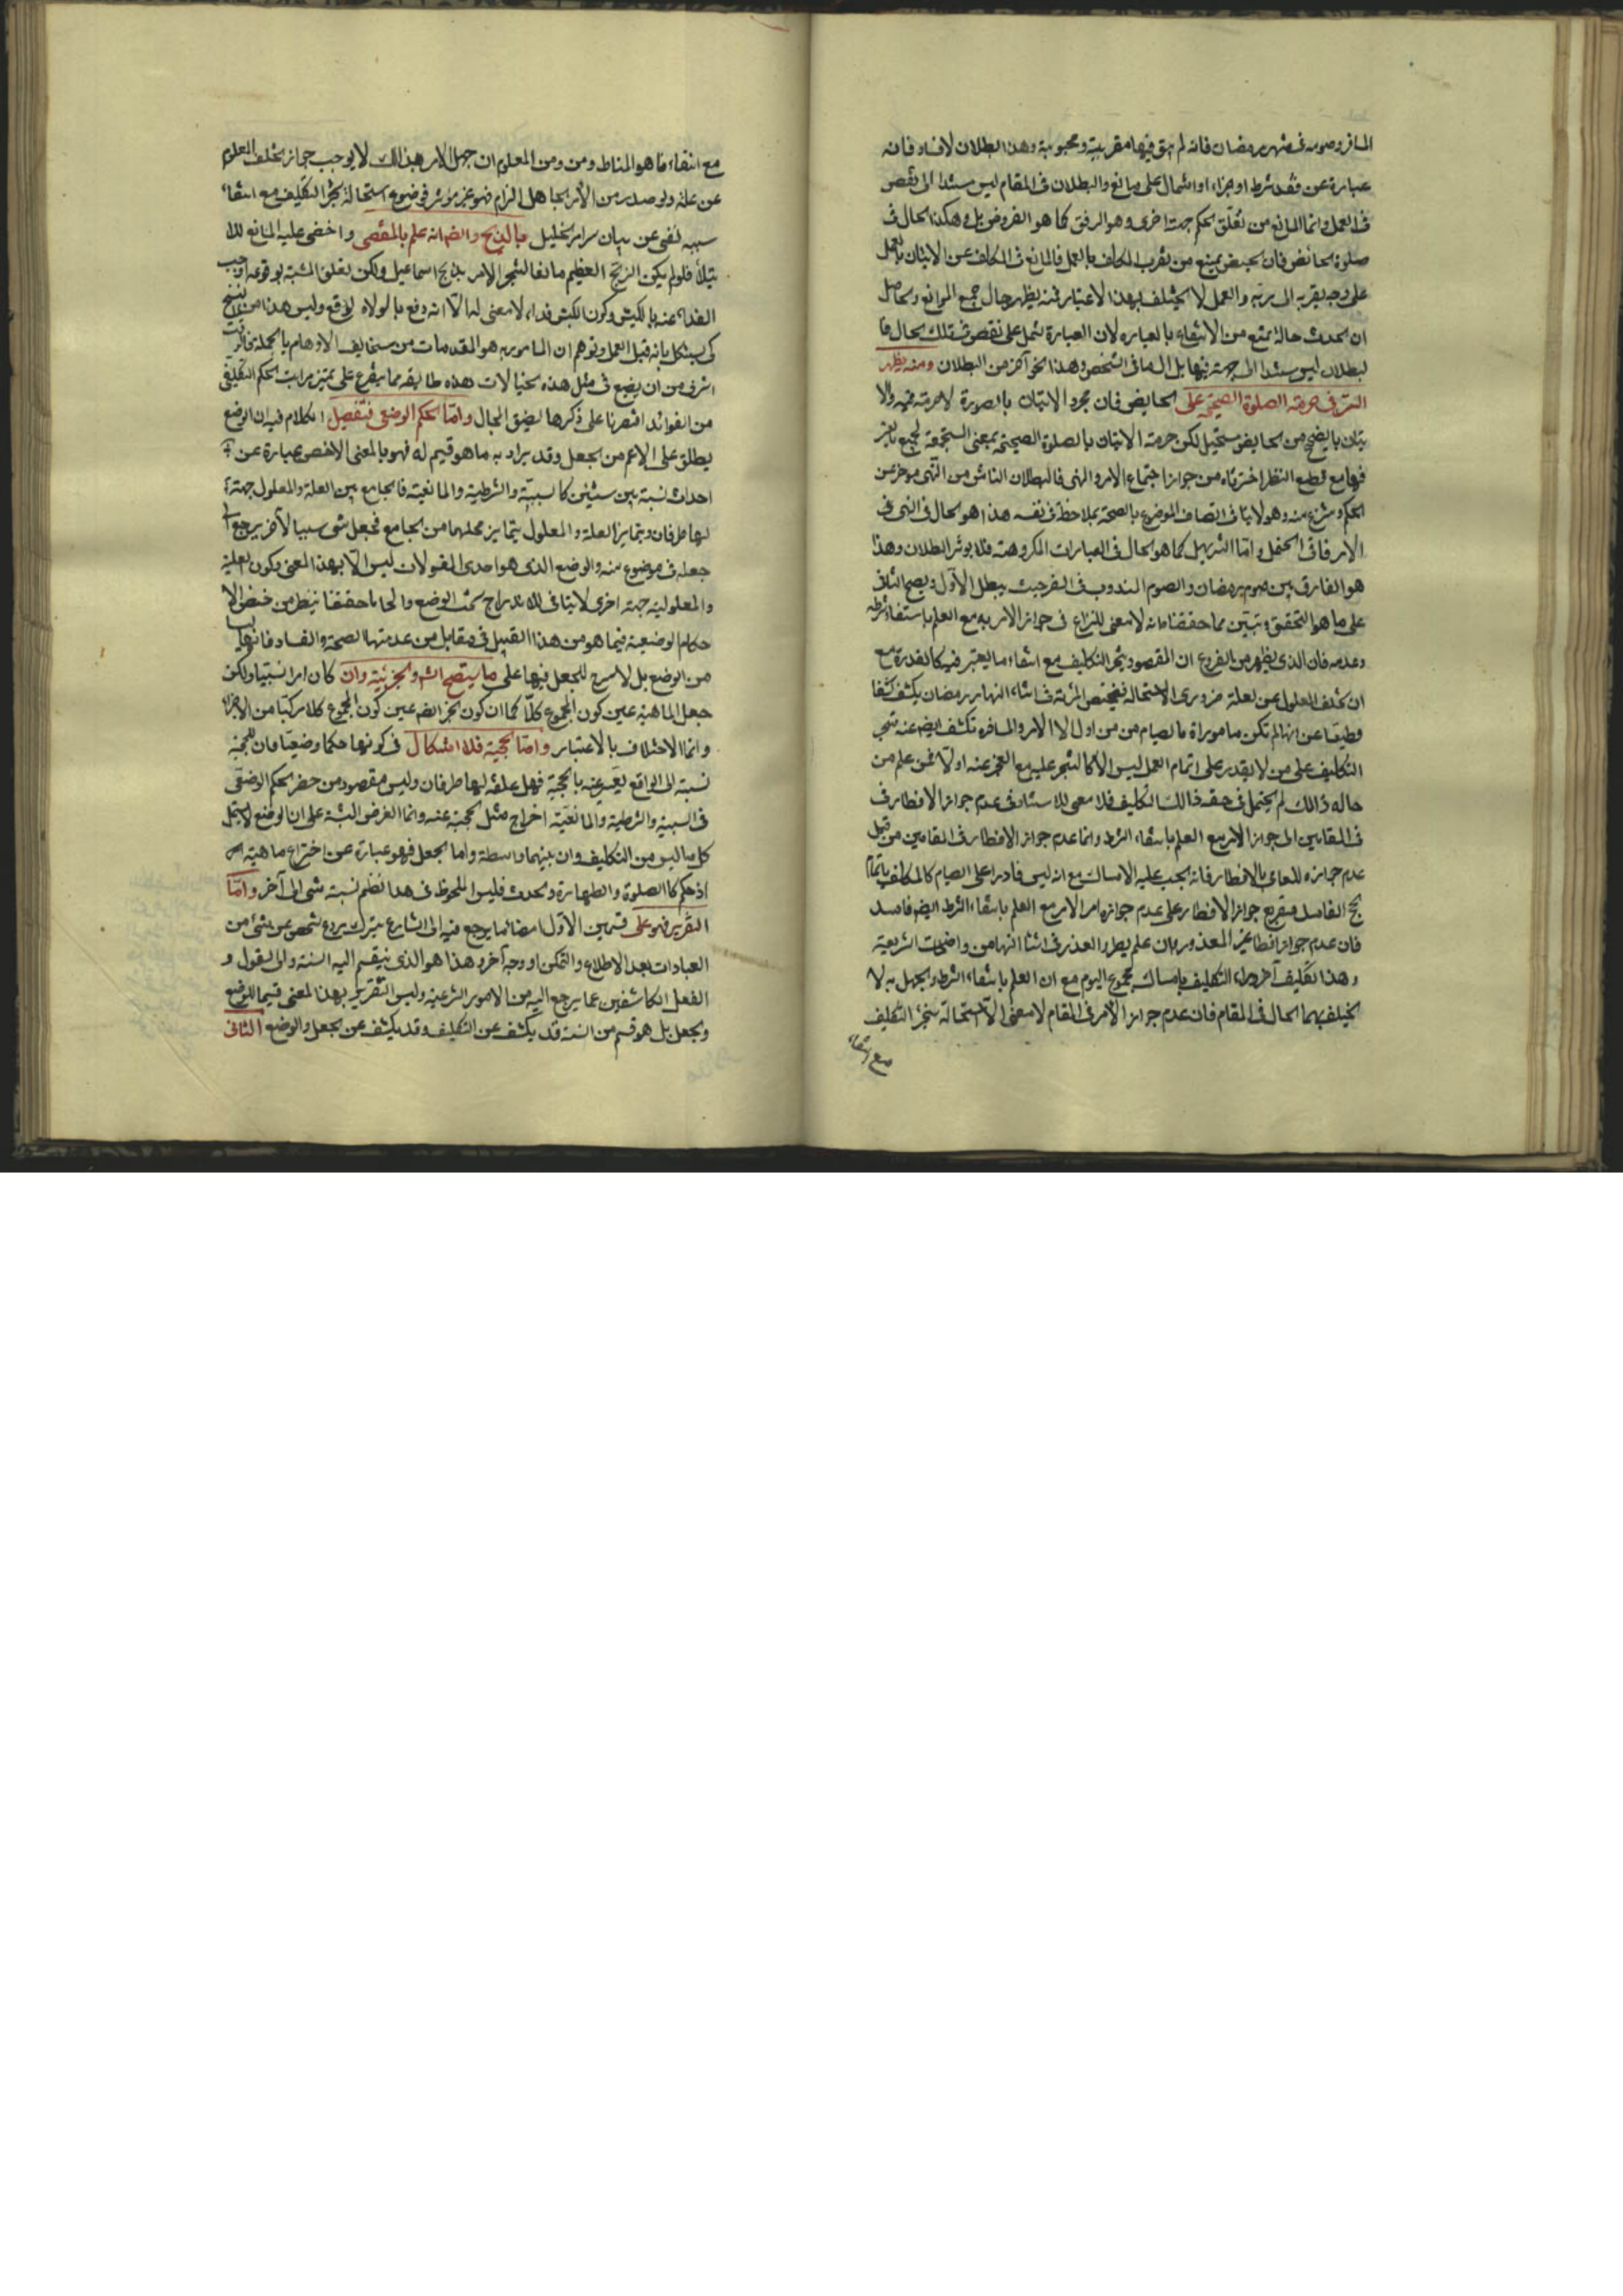 المسافر وصومه فى شهر رمضان فانه لم يبق فيها مقربية ومحبوبية وهذا البطلان لا فساد فانه
عبارة عن فقد شرط او جزء او اشتمال على مانع والبطلان فى المقام ليس مستندا الى نقص
فى العمل وانما المانع من تعلق الحكم جهة اخرى وهو الرفق كما هو المفروض بل وهكذا الحال فى
صلوة الحائض فان الحيض يمنع من تقرب المكلف بالعمل فالمانع فى المكلف عن الاتيان بالعمل
على وجه يقربه الى ربه والعمل لا يختلف بهذا الاعتبار فمنه يظهر حال جميع الموانع والحاصل
ان الحدث حالة تمنع من الانتفاع بالعبارة لان العبارة تشمل على نقص فى تلك الحال فا
لبطلان ليس مستندا الى جهة فيها بل الى ما فى الشخص وهذا نحو آخر من البطلان ومنه يظهر
السر فى حرمة الصلوة الصحيحة على الحايض فان مجرد الاتيان بالصورة لا حرمة فيه والا
تيان بالصحيح من الحايض مستحيل لكن حرمة الاتيان بالصلوة الصحيحة بمعنى المستجمعة لجميع ما يعتبر
فيها مع قطع النظر اخترناه من جواز اجتماع الامر والنهى فالبطلان الناشى من النهى مؤخر عن
الحكم ومنتزع منه وهو لا ينافى اتصاف الموضوع بالصحة بملاحظة فى نفسه هذا هو الحال فى النهى فى
الارفاقى الحفل واما التسهيل كما هو الحال فى العبارات المكروهة فلا يؤثر البطلان وهذا
هو الفارق بين صوم رمضان والصوم المندوب فى السفر حيث يبطل الاول ويصح الثانى
على ما هو التحقيق وتبين مما حققناه انه لا معنى للنزاع فى جواز الامر به مع العلم بانتفاء شرطه
وعدمه فان الذى يظهر من الفروع ان المقصود تنجز التكليف مع انتفاء ما يعتبر فيه كالقدرة مع
ان تخلف المعلول عن العلة ضرورى الاستحالة فتحيض المرئة فى اثناء النهار برمضان يكشف كشفا
قطيعا عن انها لم تكن مامورة بالصيام من اول الامر والمسافرة تكشف ايضا عنه تنجز
التكليف على من لا يقدر على اتمام العمل ليس الا كالتنجز عليه مع العجز عنه اولا فمن علم من
حاله ذالك لم يحتمل فى حقه ذالك التكليف فلا معنى للاستناد فى عدم جواز الافطار فى
فى المقامين الى جواز الامر مع العلم بانتفاء الشرط وانما عدم جواز الافطار فى المقامين من قبيل
عدم جوازه للعاصى بالافطار فانه يجب عليه الامساك مع انه ليس قادرا على الصيام كالمكلف باتمام
حج الفاسد فتفريع جواز الافطار على عدم جواز امر الامر مع العلم بانتفاء الشرط ايضا فاسد
فان عدم جواز افطار غير المعذور وان علم بطرو العذر فى اثناء النهار من واضحات الشريعة
وهذا تكليف آخر وراء التكليف بامساك مجموع اليوم مع ان العلم بانتفاء الشرط والجهل به لا
يختلف بهما الحال فى المقام فان عدم جواز الامر فى المقام لا معنى له الا استحالة تنجز التكليف
مع انتفاء
مع انتفاء ما هو المناط ومن المعلوم ان جهل الامر بهذا لك لا يوجب جواز تخلف المعلول
عن علته ولو صدر من الامر بجاهل الزام فهو غير مؤثر فوضوح استحالة تنجز التكليف مع انتفاء
سببه تغنى عن بيان سر امر الخليل بالذبح وايضا انه علم بالمقتضى واخفى عليه المانع للا
بتلاء فلو لم يكن الذبح العظيم مانعا لتنجز الامر بذبح اسماعيل ولكن تعلق المشية بوقوعه اوجب
الفداء عنه بالكبش وكون الكبش فداء لا معنى له الا انه دفع ما لولاه لوقع وليس هذا من النسخ
كى يستشكل بانه قبل العمل وتوهم ان المامور به هو المقدمات من سخايف الاوهام بالجملة فالوقت
اشرف من ان يضيع فى مثل هذه الخيالات هذه طائفة مما يتفرع على تميز مراتب الحكم التكليفى
من الفوائد اقتصرنا على ذكرها لضيق المجال واما الحكم الوضعى فتفصيل الكلام فيه ان الوضع
يطلق على الاعم من الجعل وقد يراد به ما هو قسيم له فهو بالمعنى الاخص عبارة عن
احداث نسبة بين شيئين كالسببية والشرطية والمانعية فالجامع بين العلة والمعلول جهة
لها طرفان ويتمايز العلة والمعلول بتمايز محلهما من الجامع فجعل شى سببا لآخر يرجع الى
جعله فى موضوع منه والوضع الذى هو احدى المقولات ليس الا بهذا المعنى وكون العلية
والمعلولية جهة اخرى لا ينافى للاندراج تحت الوضع والى ما حققنا ينظر من خص الا
حكام الوضعية فيما هو من هذا القبيل فى مقابل من عد منها الصحة والفساد فانها ليست
من الوضع بل لا مسرح للجعل فيها على ما يتضح انشاء والجزئية وان كان امرا نسبيا ولكن
جعل الماهية عين كون المجموع كلا كما ان كون الجزء ايضا عين كون المجموع كلا مركبا من الاجزاء
وانما الاختلاف بالاعتبار واما الحجية فلا اشكال فى كونها حكما وضعيا فان للحجية
نسبة الى الواقع يعبر عنه بالحجية فهل علقة لها طرفان وليس مقصود من حصر الحكم الوضعى
فى السببية والشرطية والمانعية اخراج مثل الحجية عنه وانما الغرض التنبه على ان الوضع لا يشمل
كل ما ليس من التكليف وان بينهما واسطة واما الجعل فهو عبارة عن اختراع ماهية
اذ حكم كالصلوة والطهارة والحدث فليس الملحوظ فى هذا نظم نسبة شى الى آخر واما
التقرير فهو على قسمين الاول امضائما يرجع فيه الى الشارع بترك ردع شخص عن شئ من
العبادات بعد الاطلاع والتمكن او وجه آخر وهذا هو الذى ينقسم اليه السنة والى القول و
الفعل الكاشفين عما يرجع اليه من الامور الشرعية وليس التقرير بهذا المعنى قسيما للوضع
والجعل بل هو قسم من السنة قد يكشف عن التكليف وقد يكشف عن الجعل والوضع الثانى